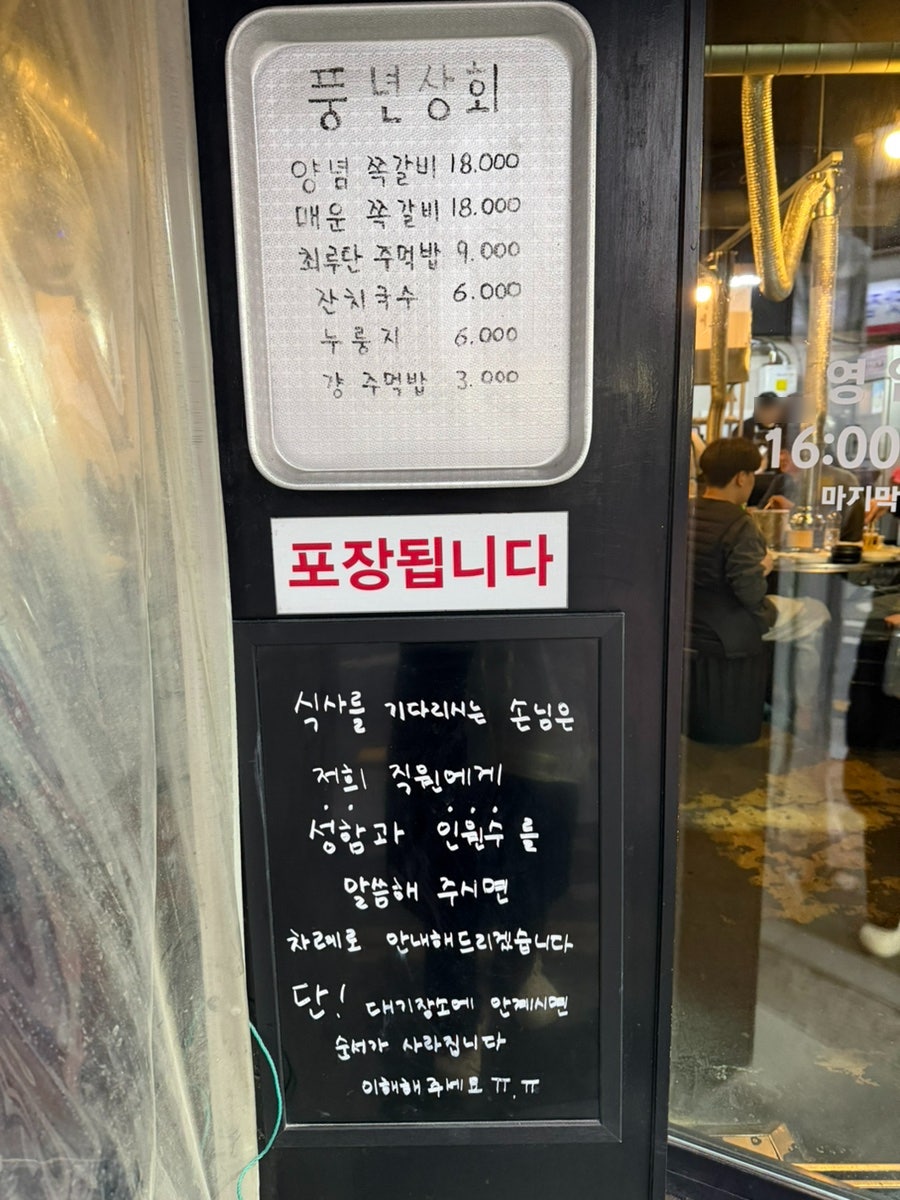 풍년상회
양념 쪽갈비 18.000
매운 쪽갈비 18.000
최루탄 주먹밥 9.000
잔치국수 6.000
누룽지 6.000
걍 주먹밥 3.000
포장됩니다
식사를 기다리시는 손님은
저희 직원에게
성함과 인원수를
말씀해 주시면
차례로 안내해드리겠습니다
단! 대기장소에 안계시면
순서가 사라집니다
이해해주세요 ㅠ.ㅠ
영
16:00
마지막